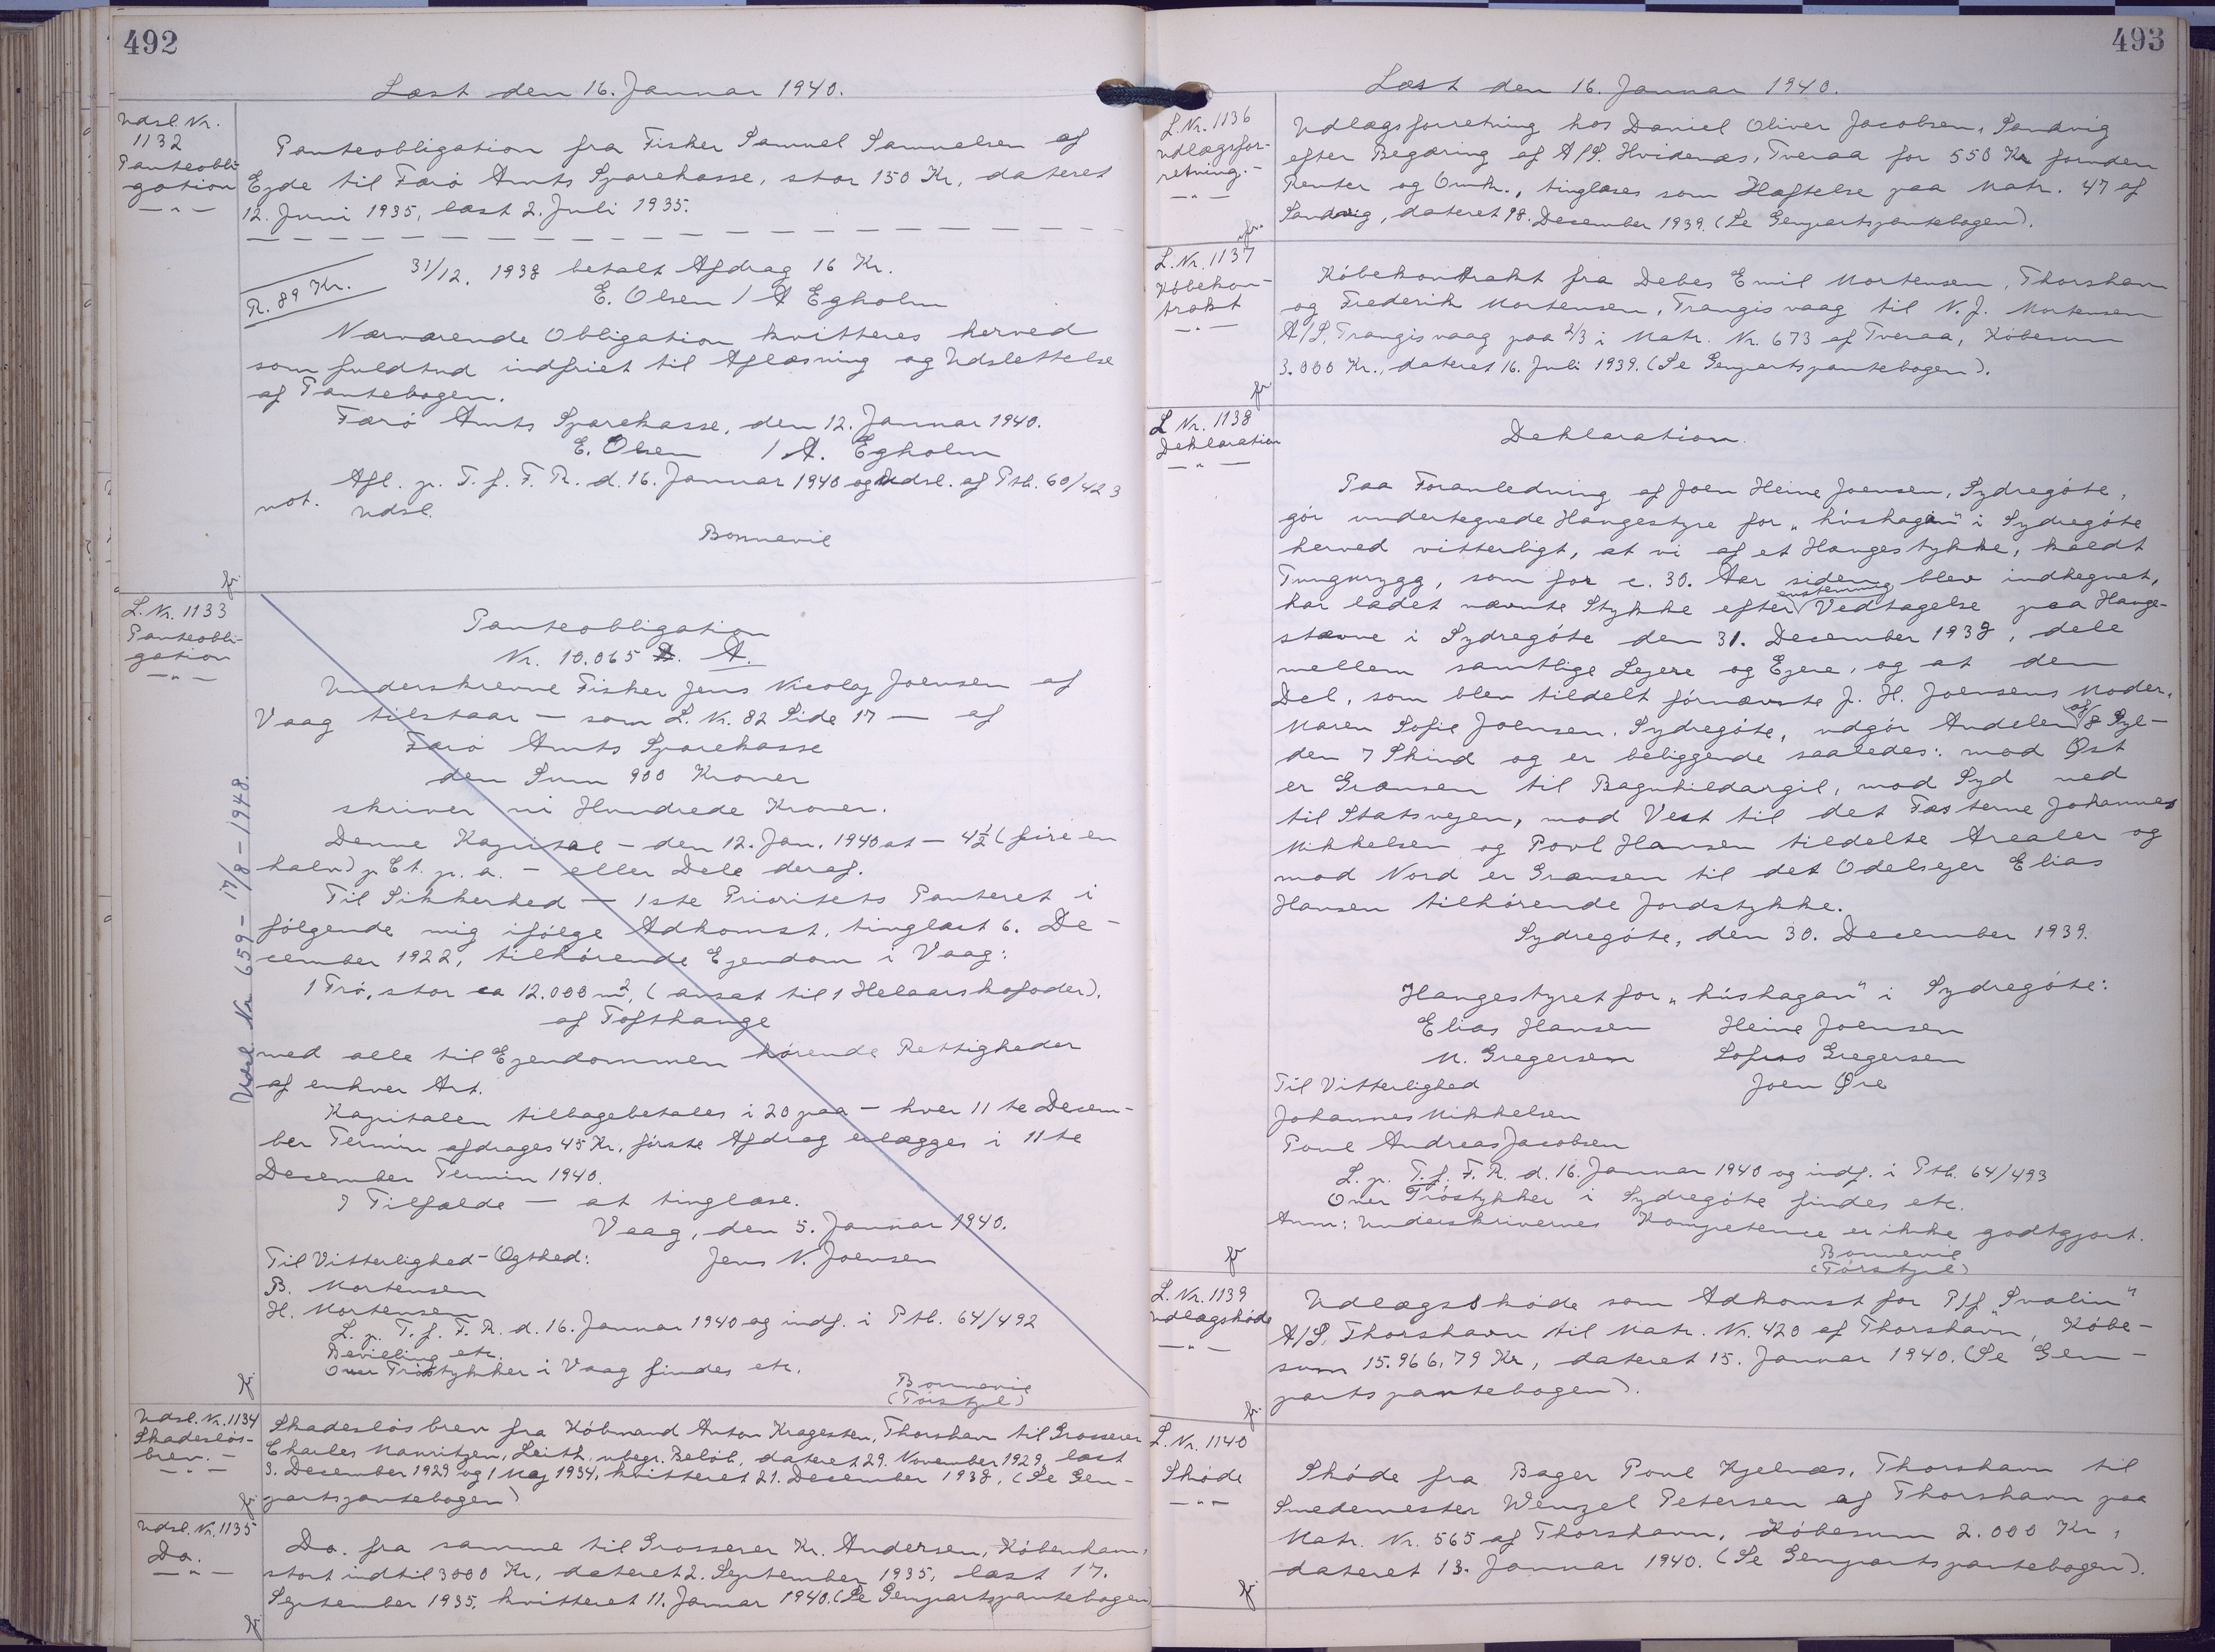 492
Læst den 16. Januar 1940.
Udsl. Nr.
1132
Panteobli-
gation
Panteobligation fra Fisker Samuel Samuelsen af
Ejde til Færø Amts Sparekasse, stor 150 Kr, dateret
12. Juni 1935, læst 2. Juli 1935.
R. 89 Kr.
31/12. 1938 betalt Afdrag 16 Kr.
E. Olsen / A Egholm
Nærværende Obligation kvitteres herved
som fuldtud indfriet til Aflæsning og Udslettelse
af Pantebogen.
Færø Amts Sparekasse, den 12. Januar 1940.
E. Olsen / A. Egholm
Afl. p. T. f. F. R. d. 16. Januar 1940 og Udsl. af Ptb. 60/423
not. Udsl.
Bonnevie
fr.
L. Nr. 1133
Panteobli-
gation
Udsl. Nr. 659 - 17/8 - 1948.
Panteobligation
Nr. 10.065 A.
Underskrevne Fisker Jens Nicolaj Joensen af
Vaag tilstaar — som L. Nr. 82 Side 17 — af
Færø Amts Sparekasse
den Sum 900 Kroner
skriver ni Hundrede Kroner.
Denne Kapital — den 12. Jan. 1940 at — 4½ (fire en
halv) p Ct. p. a. — eller Dele deraf.
Til Sikkerhed — 1ste Prioritets Panteret i
følgende mig ifølge Adkomst, tinglæst 6. De-
cember 1922, tilhørende Ejendom i Vaag:
1 Trø, stor ca 12.000 m², (ansat til 1 Helaarskofoder).
af Tofthauge
med alle til Ejendommen hørende Rettigheder
af enhver Art.
Kapitalen tilbagebetales i 20 paa — hver 11te Decem-
ber Termin afdrages 45 Kr, første Afdrag erlægges i 11te
December Termin 1940.
I Tilfælde — at tinglæse.
Vaag, den 5. Januar 1940.
Til Vitterlighed - Ægthed: Jens N. Joensen
B. Mortensen
H. Mortensen
L. p. T. f. F. R. d. 16. Januar 1940 og indf. i Ptb. 64/492
Devilling etc.
Over Trøstykker i Vaag findes etc.
Bonnevie
fr.
Udsl. Nr. 1134
Skadesløs-
brev. -
Skadesløsbrev fra Købmand Anton Kragesteen, Thorshavn til Grosserer
Charles Mauritzen, Leith, ubegr. Beløb, dateret 29. November 1929, læst
3. December 1929 og 1 Maj 1934, kvitteret 21. December 1938, (Se Gen-
partspantebogen)
fr.
Udsl. Nr. 1135
Do.
Do. fra samme til Grosserer Kr. Andersen, København,
stort indtil 3000 Kr, dateret 2. September 1935, læst 17.
September 1935, kvitteret 11. Januar 1940. (Se Genpartspantebogen
fr.
493
Læst den 16. Januar 1940.
L. Nr. 1136
Udlægsfor-
retning. -
Udlægsforretning hos Daniel Oliver Jacobsen, Sandvig
efter Begæring af A/S. Hvidenæs, Tveraa for 550 Kr foruden
Renter og Omk., tinglæses som Hæftelse paa Matr. 47 af
Sandvig, dateret 18. December 1939. (Se Genpartspantebogen).
fr.
L. Nr. 1137
Købekon-
trakt
Købekontrakt fra Debes Emil Mortensen, Thorshavn
og Frederik Mortensen, Trangisvaag til N. J. Mortensen
A/S, Trangisvaag paa 2/3 i Matr. Nr. 673 af Tveraa, Købesum
3.000 Kr., dateret 16. Juli 1939. (Se Genpartspantebogen).
fr.
L Nr. 1138
Deklaration
Deklaration.
Paa Foranledning af Joen Heine Joensen, Sydregøte,
gør undertegnede Haugestyre for „húshagan" i Sydregøte
herved vitterligt, at vi af et Haugestykke, kaldt
Tungurygg, som for c. 30. Aar siden blev indhegnet,
enstemmig
har ladet nævnte Stykke efter Vedtagelse paa Hauge-
stævne i Sydregøte den 31. December 1938, dele
mellem samtlige Lejere og Ejere, og at den
Del, som blev tildelt førnævnte J. H. Joensens Moder,
Maren Sofie Joensen, Sydregøte, udgør Andelen af 8 Gyl-
den 7 Skind og er beliggende saaledes: mod Øst
er Grænsen til Bagnhildargil, mod Syd ned
til Statsvejen, mod Vest til det Fæsterne Johannes
Mikkelsen og Povl Hansen tildelte Arealer og
mod Nord er Grænsen til det Odelsejer Elias
Hansen tilhørende Jordstykke.
Sydregøte, den 30. December 1939.
Haugestyret for „húshagan" i Sydregøte:
Elias Hansen Heine Joensen
M. Gregersen Sofus Gregersen
Til Vitterlighed Joen Øre
Johannes Mikkelsen
Poul Andreas Jacobsen
L. p. T. f. F. R. d. 16. Januar 1940 og indf. i Ptb. 64/493
Over Trøstykker i Sydregøte findes etc.
Anm: Underskrivernes Kompetence er ikke godtgjort.
Bonnevie
fr
L. Nr. 1139
Udlægsskøde
Udlægsskøde som Adkomst for P/f „Svalin"
A/S, Thorshavn til Matr. Nr. 420 af Thorshavn, Købe-
sum 15.966,79 Kr, dateret 15. Januar 1940. (Se Gen-
partspantebogen).
fr.
L. Nr. 1140
Skøde
Skøde fra Bager Poul Kjelnæs, Thorshavn til
Smedemester Wenzel Petersen af Thorshavn paa
Matr. Nr. 565 af Thorshavn, Købesum 2.000 Kr,
dateret 13. Januar 1940. (Se Genpartspantebogen).
fr.